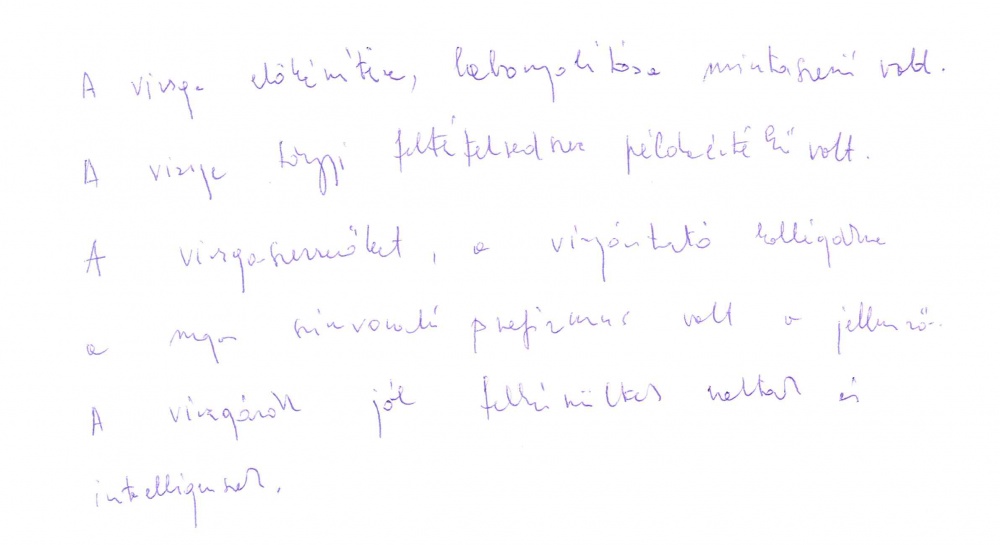 A vizsga előkészítése, lebonyolítása mintaszerű volt.
A vizsga tárgyi feltételrendszere példaértékű volt.
A vizsgaszervezőket, a vizsgáztató kollégákra
a magas színvonalú profizmus volt a jellemző.
A vizsgázók jól felkészültek voltak és
intelligensek.